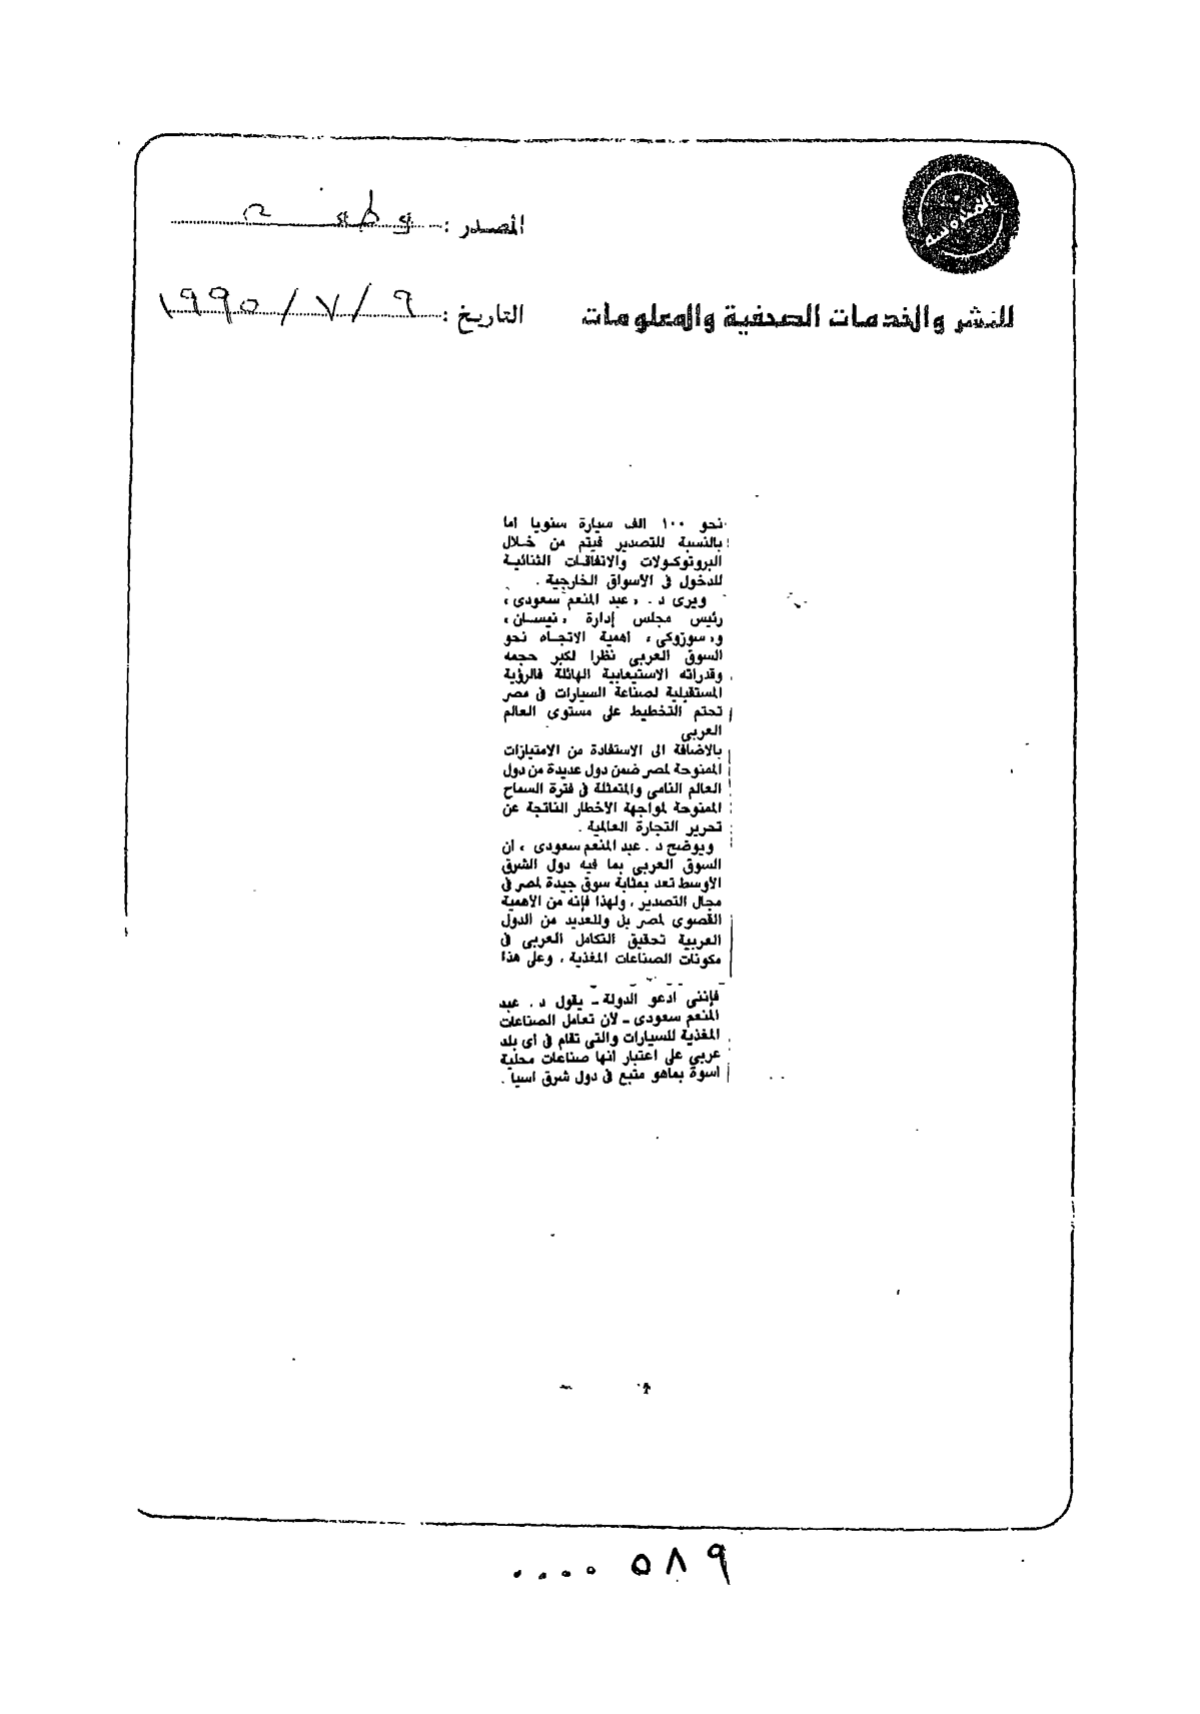 المصدر : وطنى
للنشر والخدمات الصحفية والمعلومات
التاريخ : ١٩٩٥/٧/٩
نحو ١٠٠ الف سيارة سنويا اما
بالنسبة للتصدير فيتم من خلال
البروتوكولات والاتفاقات الثنائية
للدخول فى الأسواق الخارجية .
ويرى د . « عبد المنعم سعودى »
رئيس مجلس إدارة « نيسان »
و« سوزوكى » اهمية الاتجاه نحو
السوق العربى نظرا لكبر حجمه
وقدراته الاستيعابية الهائلة فالرؤية
المستقبلية لصناعة السيارات فى مصر
تحتم التخطيط على مستوى العالم
العربى
بالاضافة الى الاستفادة من الامتيازات
الممنوحة لمصر ضمن دول عديدة من دول
العالم النامى والمتمثلة فى فترة السماح
الممنوحة لمواجهة الأخطار الناتجة عن
تحرير التجارة العالمية .
ويوضح د . عبد المنعم سعودى ، ان
السوق العربى بما فيه دول الشرق
الأوسط تعد بمثابة سوق جيدة لمصر فى
مجال التصدير ، ولهذا فإنه من الأهمية
القصوى لمصر بل وللعديد من الدول
العربية تحقيق التكامل العربى فى
مكونات الصناعات المغذية ، وعلى هذا
فإننى ادعو الدولة ـ يقول د . عبد
المنعم سعودى ـ لأن تعامل الصناعات
المغذية للسيارات والتى تقام فى اى بلد
عربى على اعتبار انها صناعات محلية
اسوة بماهو متبع فى دول شرق اسيا .
٠٠٠٠ ٥٨٩